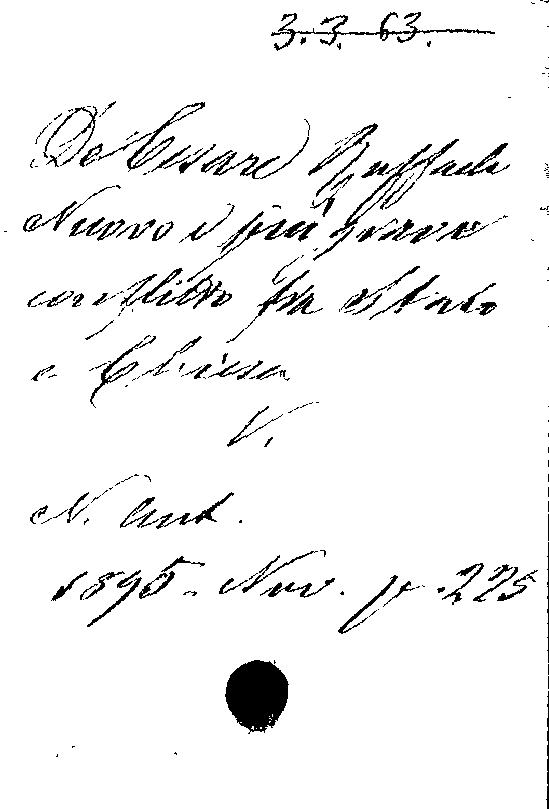 3.3.63.
De Cesare Raffaele
Nuovo e più grave
conflitto fra Stato
e Chiesa
V.
N. Ant.
1895. Nov. p. 225